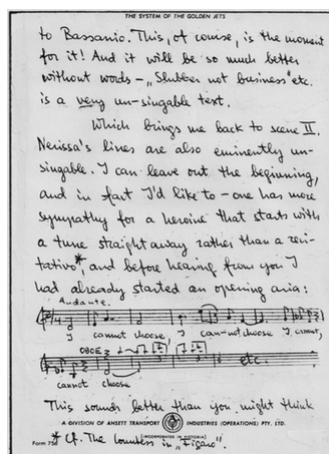 THE SYSTEM OF THE GOLDEN JETS
to Bassanio. This, of course, is the moment
for it! And it will be so much better
without words – „Slubber not business" etc.
is a very un-singable text.
Which brings me back to scene II.
Nerissa's lines are also eminently un-
singable. I can leave out the beginning,
and in fact I'd like to – one has more
sympathy for a heroine that starts with
a tune straight away rather than a reci-
tativo*, and before hearing from you I
had already started an opening aria:
Andante.
I cannot choose, I can-not choose I cannot,
OBOE
cannot choose etc.
This sounds better than you might think
A DIVISION OF ANSETT TRANSPORT INDUSTRIES (OPERATIONS) PTY. LTD.
(INCORPORATED IN VICTORIA)
Form 75
* Cf. The Countess in „Figaro".